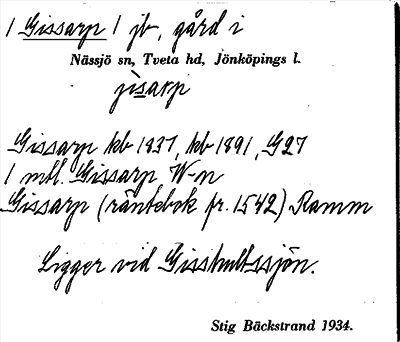 1 Gissarp 1 jb, gård i
Nässjö sn, Tveta hd, Jönköpings l.
jisarp
Gissarp kb 1837, kb 1891, G27
1 mtl. Gissarp W-n
Gissarp (räntebok fr. 1542) Ramm
Ligger vid Gisshultssjön.
Stig Bäckstrand 1934.